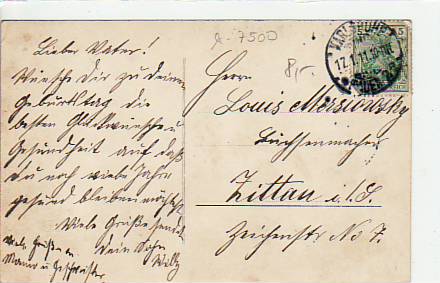 a-7500
8,-
KARLSRUHE
17.1.11
5
Lieber Vater!
Wünsche Dir zu deinem
Geburtstag die
besten Glückwünsche u.
Gesundheit auf daß
Du noch viele Jahre
gesund bleiben möchtest.
Viele Grüße sendet
Dein Sohn
Willy
Viele Grüße an
Mama u. Geschwister
Herrn
Louis
Büchsenmacher
Zittau i./S.
Zeichenstr. No 7.